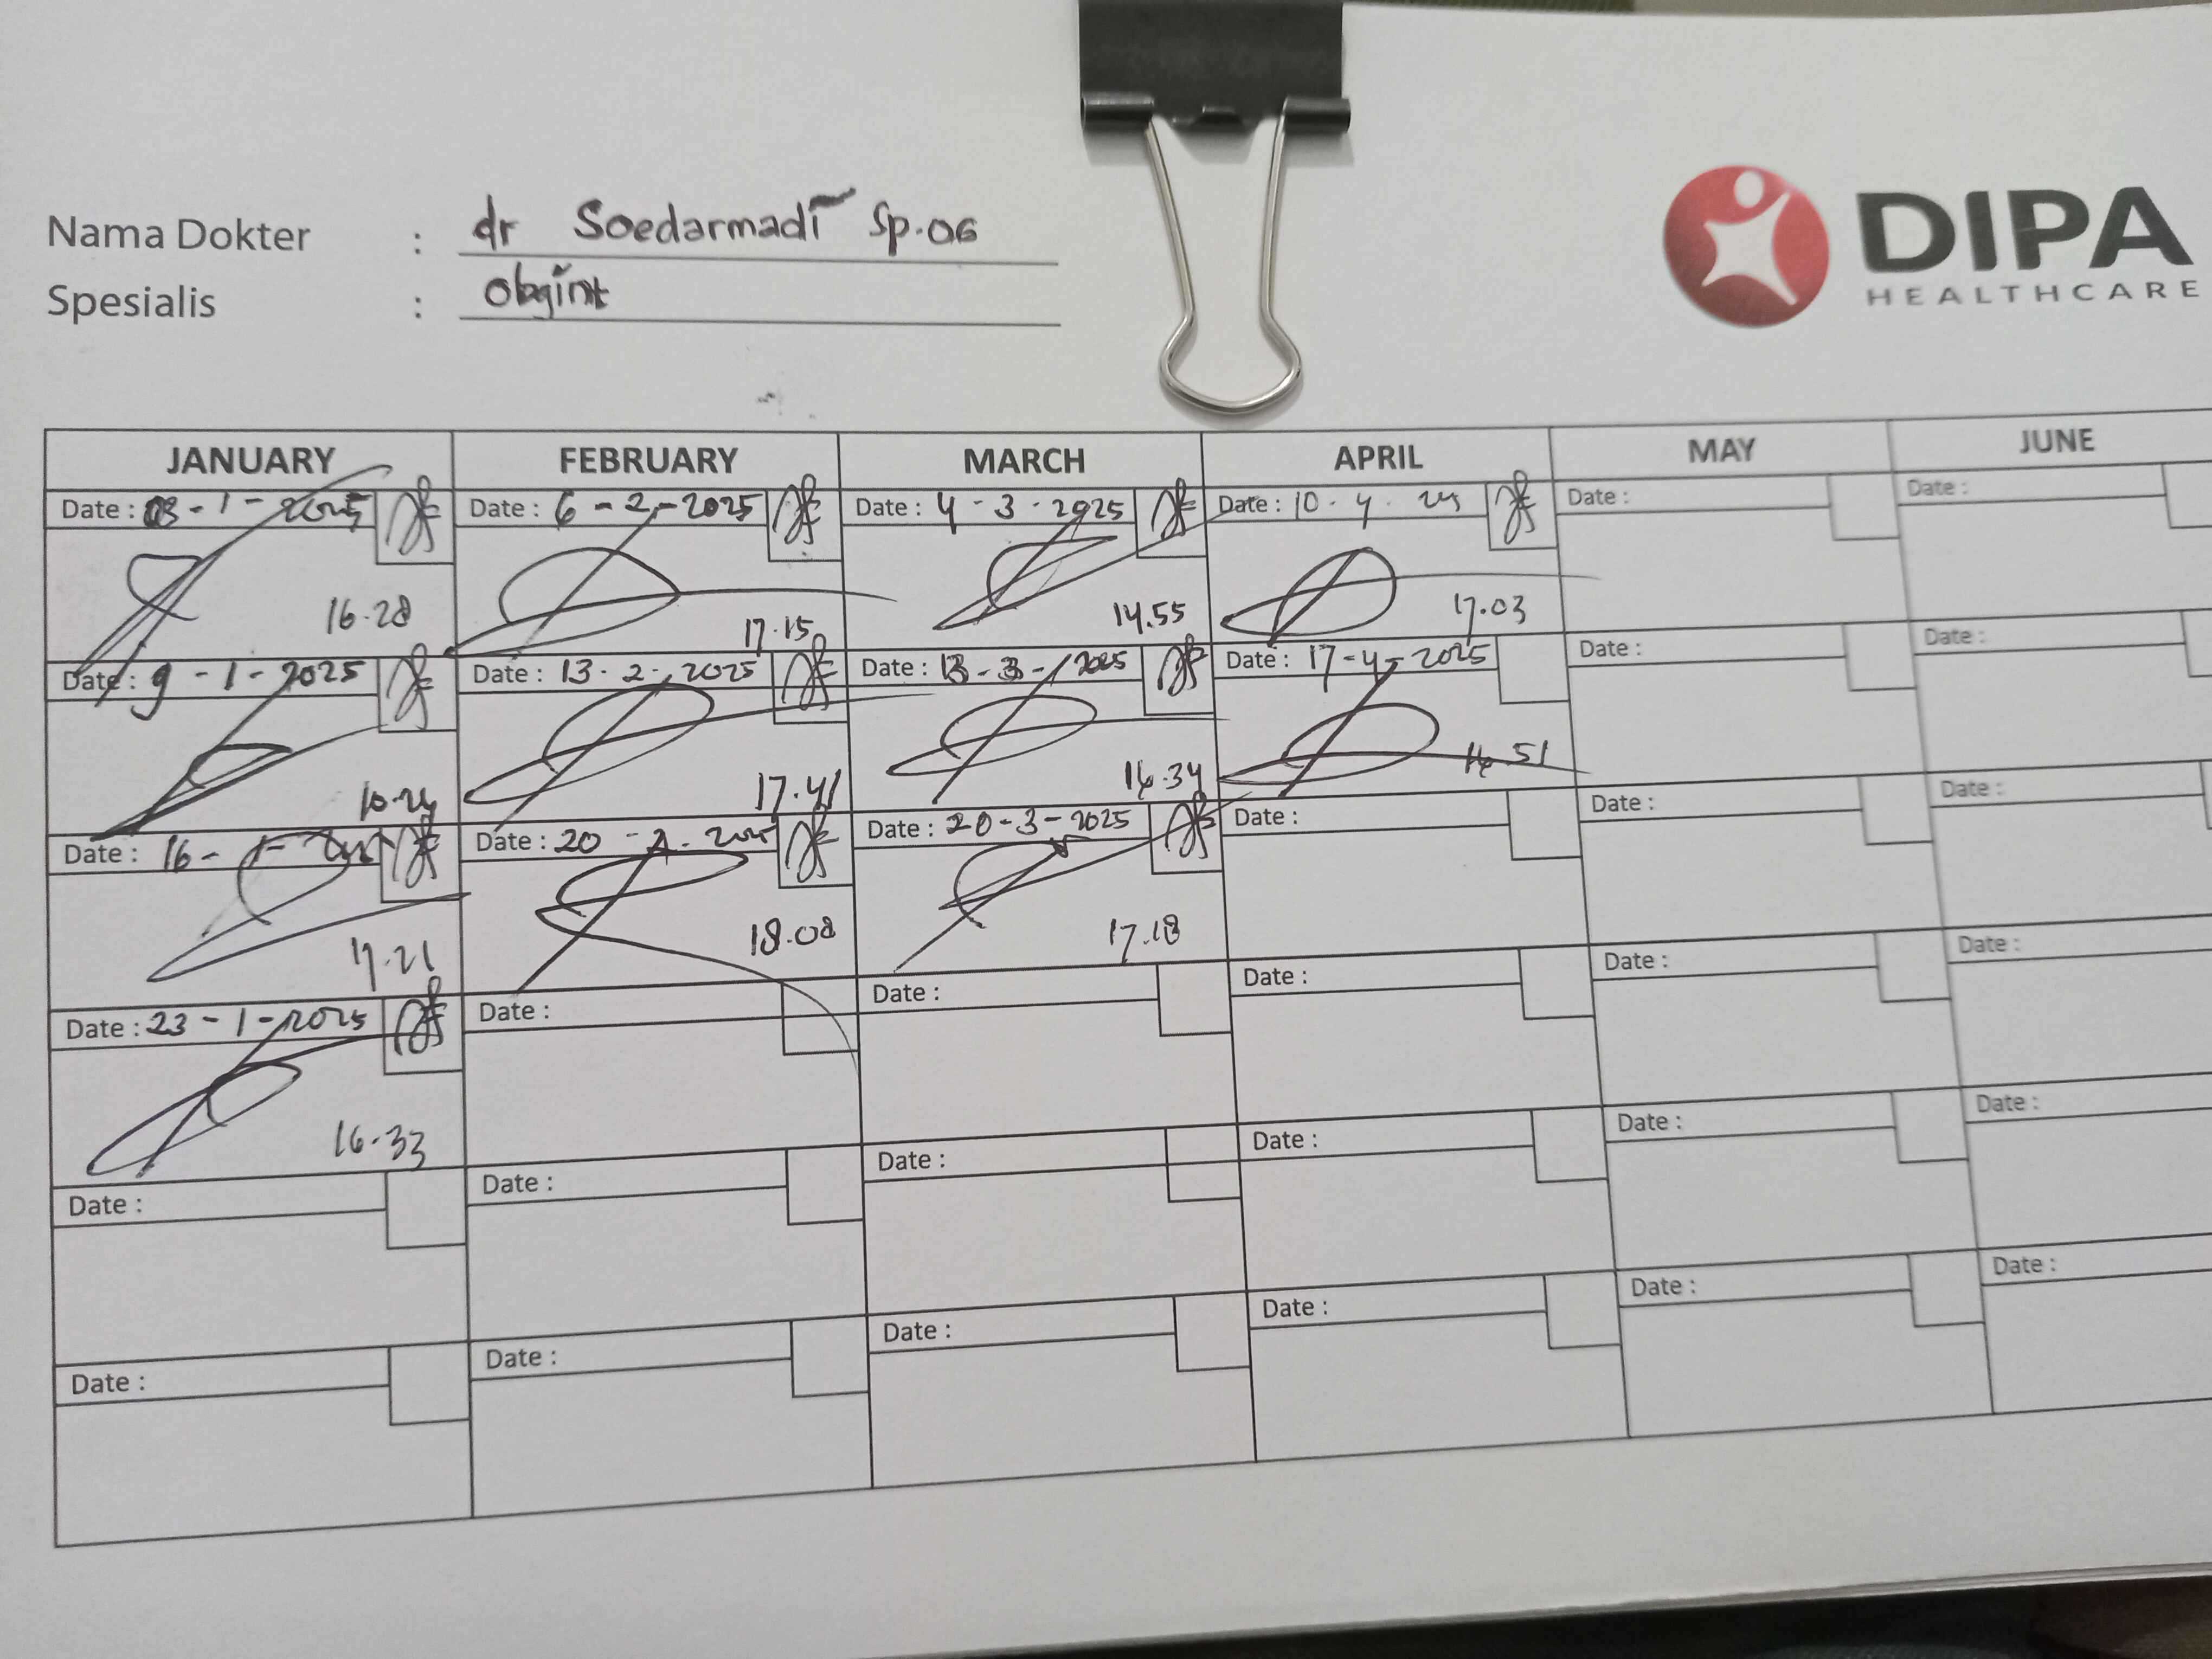 Nama Dokter : dr Soedarmadi Sp.OG
Spesialis : Obgint
DIPA
HEALTHCARE
JANUARY FEBRUARY MARCH APRIL MAY JUNE
Date : 03 - 1 - 2025 Date : 6 - 2 - 2025 Date : 4 - 3 - 2025 Date : 10 . 4 . Date : Date :
16.28 17.15 14.55 17.03
Date : 9 - 1 - 2025 Date : 13 . 2 - 2025 Date : 13 - 3 - 2025 Date : 17 - 4 - 2025 Date : Date :
17.41 16.34
Date : 16 - 1 - Date : 20 - 2 - 2025 Date : 20 - 3 - 2025 Date : Date : Date :
17.21 18.08 17.18
Date : 23 - 1 - 2025 Date : Date : Date : Date : Date :
16.33
Date : Date : Date : Date : Date : Date :
Date : Date : Date : Date : Date : Date :